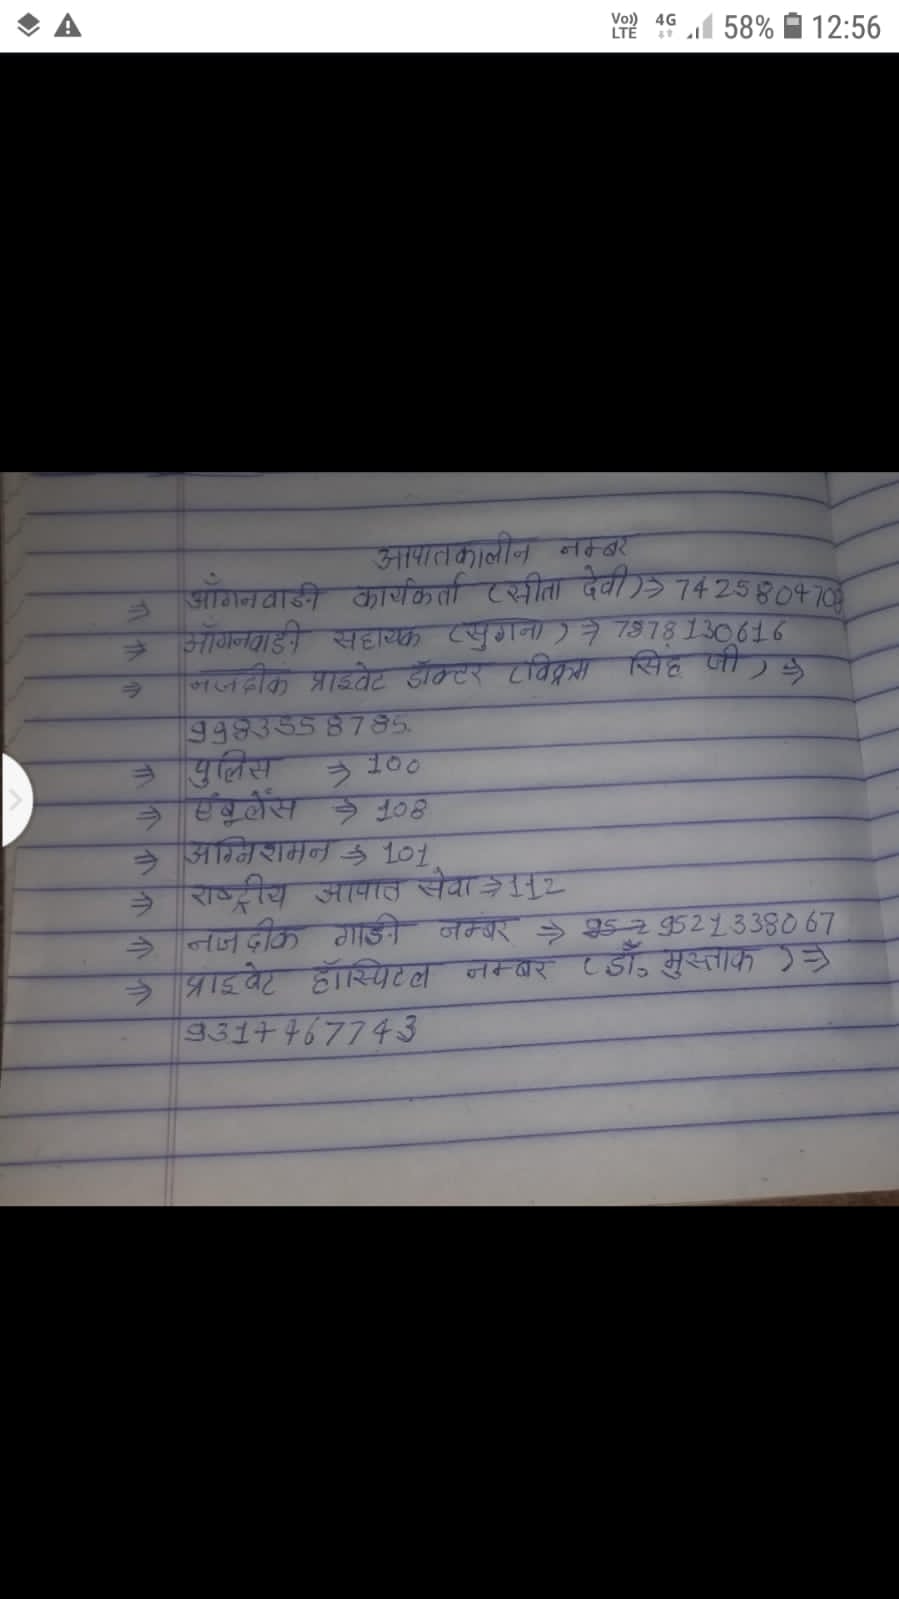 Vo)) LTE 4G 58% 12:56
आपातकालीन नम्बर
⇒ आँगनवाडी कार्यकर्ता (सीता देवी) ⇒ 7425804708
⇒ आँगनवाडी सहायक (सुगना) ⇒ 7878130616
⇒ नजदीक प्राइवेट डॉक्टर (विक्रम सिंह जी) ⇒
9983558785.
⇒ पुलिस ⇒ 100
⇒ एंबूलेंस ⇒ 108
⇒ अग्निशमन ⇒ 101
⇒ राष्ट्रीय आपात सेवा ⇒ 112
⇒ नजदीक गाडी नम्बर ⇒ 9521338067
⇒ प्राइवेट हॉस्पिटल नम्बर (डॉ. मुस्ताक) ⇒